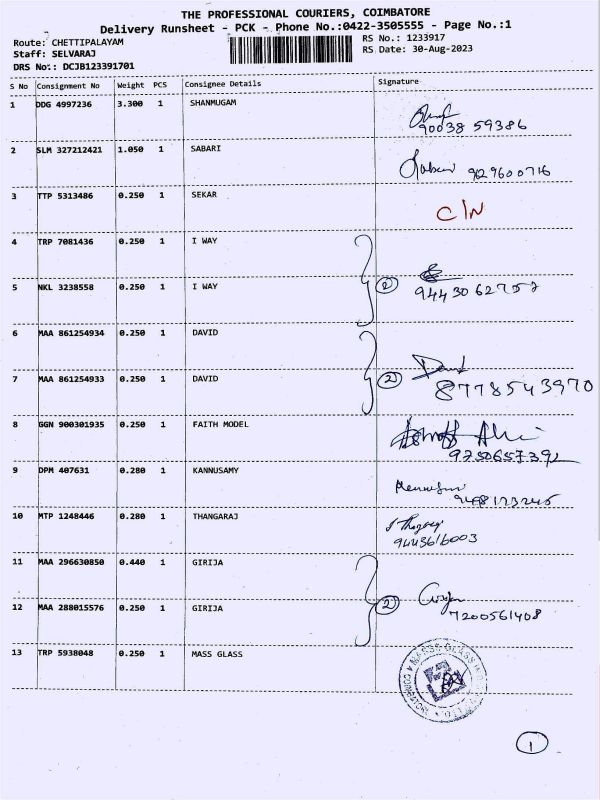 THE PROFESSIONAL COURIERS, COIMBATORE
Delivery Runsheet - PCK - Phone No.:0422-3505555 - Page No.:1
Route: CHETTIPALAYAM RS No.: 1233917
Staff: SELVARAJ RS Date: 30-Aug-2023
DRS No.: DCJB123391701
S No Consignment No Weight PCS Consignee Details Signature
1 DDG 4997236 3.300 1 SHANMUGAM
90038 59386
2 SLM 327212421 1.050 1 SABARI
9629600716
3 TTP 5313486 0.250 1 SEKAR C/N
4 TRP 7081436 0.250 1 I WAY
5 NKL 3238558 0.250 1 I WAY 2
6 MAA 861254934 0.250 1 DAVID
7 MAA 861254933 0.250 1 DAVID 2 8778543970
8 GGN 900301935 0.250 1 FAITH MODEL
9 DPM 407631 0.280 1 KANNUSAMY
10 MTP 1248446 0.280 1 THANGARAJ
9443616003
11 MAA 296630850 0.440 1 GIRIJA
12 MAA 288015576 0.250 1 GIRIJA 2 7200561408
13 TRP 5938048 0.250 1 MASS GLASS
1